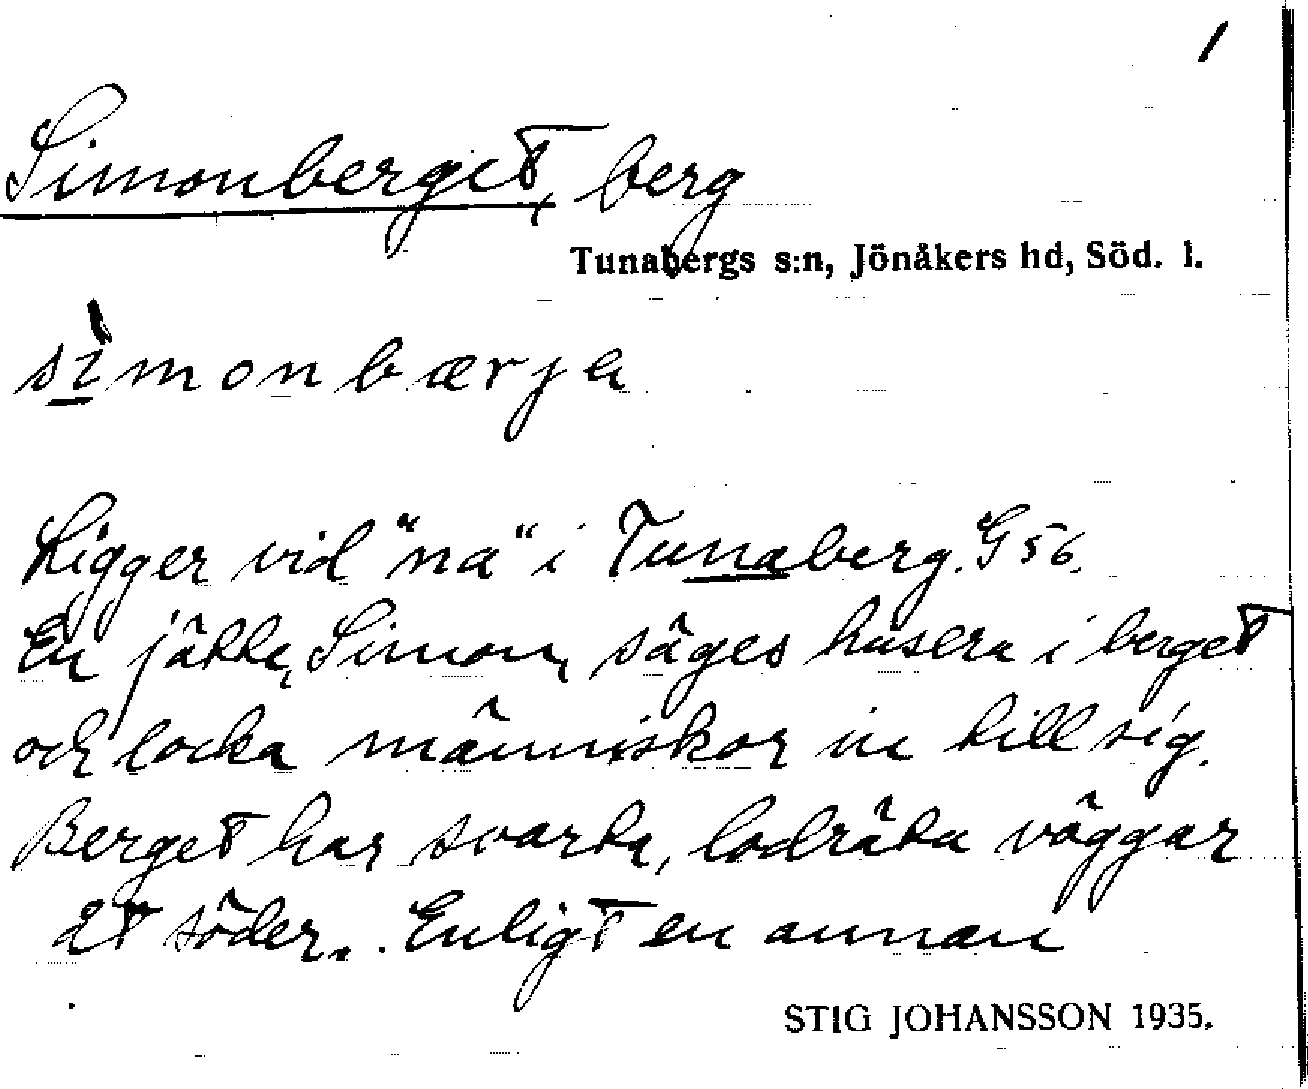 1
Simonberget, berg
Tunabergs s:n, Jönåkers hd, Söd. l.
sìmonbærja
Ligger vid "na" i Tunaberg. G 56.
En jätte, Simon, säges husera i berget
och locka människor in till sig.
Berget har svarta, lodräta väggar
åt söder. Enligt en annan
STIG JOHANSSON 1935.